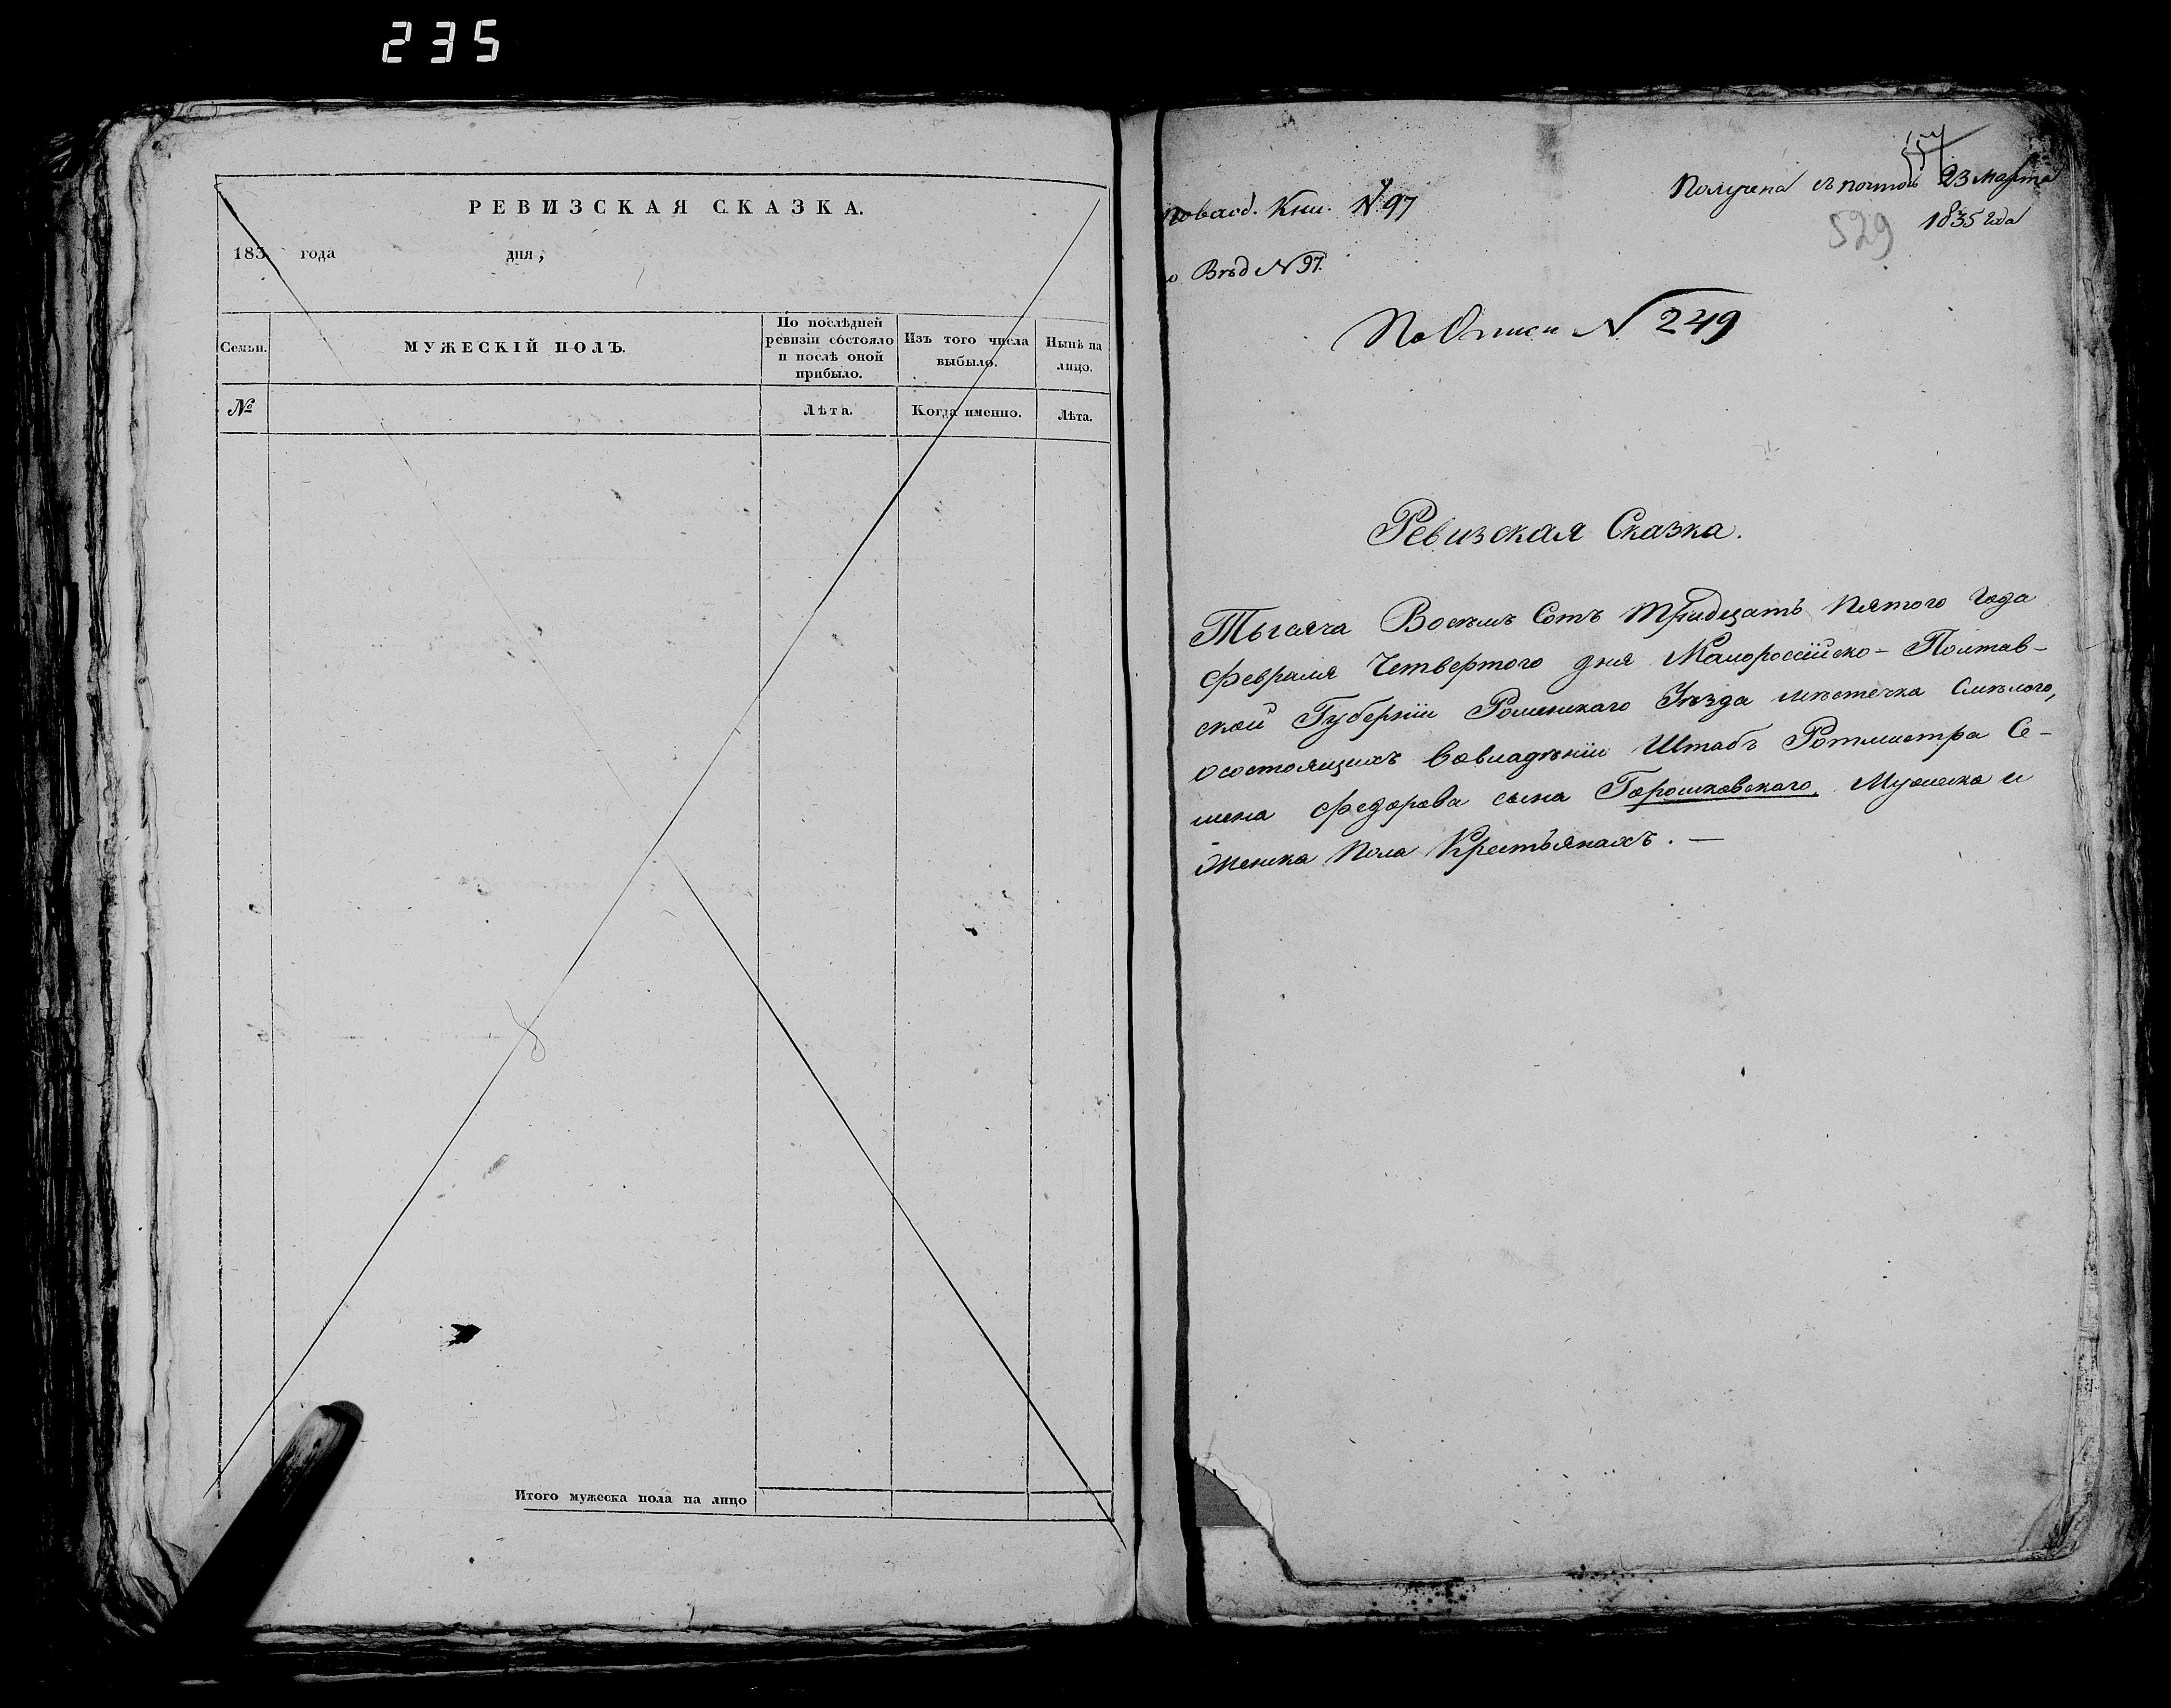 235
РЕВИЗСКАЯ СКАЗКА.
183 года дня,
Семьи.
МУЖЕСКІЙ ПОЛЪ.
По послѣдней
ревизіи состояло
и послѣ оной
прибыло.
Изъ того числа
выбыло.
Нынѣ на
лицо.
№
Лѣта.
Когда именно.
Лѣта.
Итого мужеска пола на лицо
Кни. № 97
Получена съ почтою 23 марта
1835 года
529
Вѣд № 97.
По Описи № 249
Ревизская Сказка.
Тысяча Восемь Сотъ Тридцать Пятого Года
Февраля Четвертого дня Малороссійско-Полтав-
ской Губерніи Роменскаго Уѣзда мѣстечка Смѣлого,
осостоящихъ вовладѣніи Штабъ Ротмистра Се-
мена Федорова сына Горошковскаго, Мужеска и
Женска Пола Крестьянахъ. —